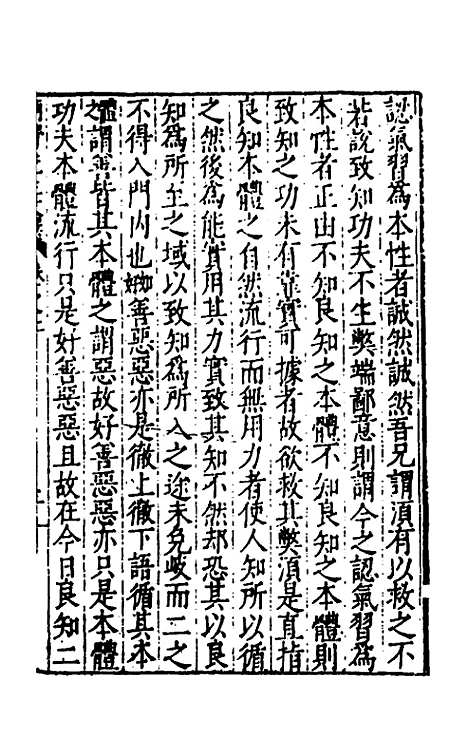 認氣習爲本性者誠然誠然吾兄謂湏有以救之不
若說致知功夫不生弊端鄙意則謂今之認氣習爲
本性者正由不知良知之本體不知良知之本體則
致知之功未有靠實可據者故欲救其弊湏是直指
良知本體之自然流行而無用力者使人知所以循
之然後爲能實用其力實致其知不然却恐其以良
知爲所至之域以致知爲所入之途未免歧而二之
不得入門内也如好善惡惡亦是徹上徹下語循其本
體之謂善背其本體之謂惡故好善惡惡亦只是本體
功夫本體流行只是好善惡惡且故在今日良知二